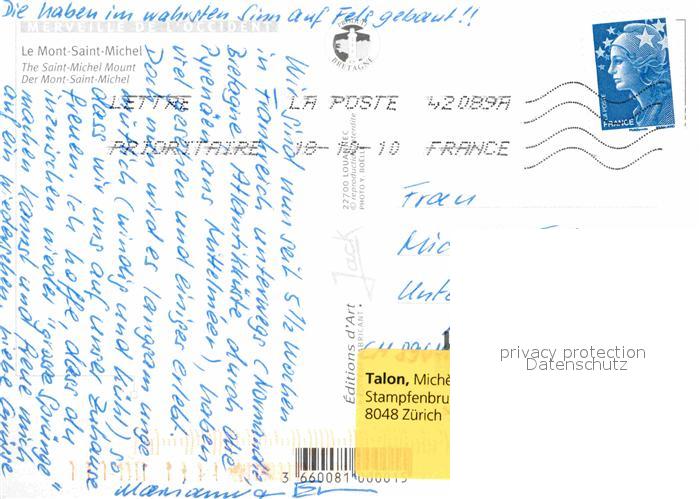 Die haben im wahrsten Sinn auf Fels gebaut!!
MERVEILLE DE L'OCCIDENT
Le Mont-Saint-Michel
The Saint-Michel Mount
Der Mont-Saint-Michel
PRODUIT EN BRETAGNE
LETTRE LA POSTE 42089A
PRIORITAIRE 18-10-10 FRANCE
FRANCE
Wir sind nun seit 5 1/2 Wochen
in Frankreich unterwegs (Normandie
Bretagne Atlantikküste durch die
Pyrenäen ans Mittelmeer), haben
viel gesehen und einiges erlebt.
Doch nun wird es langsam unge-
mütlich (windig und kühl), so
dass wir uns auf unser Zuhause
freuen. Ich hoffe, dass du
inzwischen wieder "grosse Sprünge"
machen kannst und freue mich
auf ein Wiedersehen. Liebe Grüsse
Marianna
22700 LOUANNEC
© reproduction interdite
PHOTO Y. BOËLLE
Jack
Editions d'Art
FABRICANT
Frau
Mic
Unt
Talon, Michè
Stampfenbru
8048 Zürich
privacy protection
Datenschutz
3 660081 000015